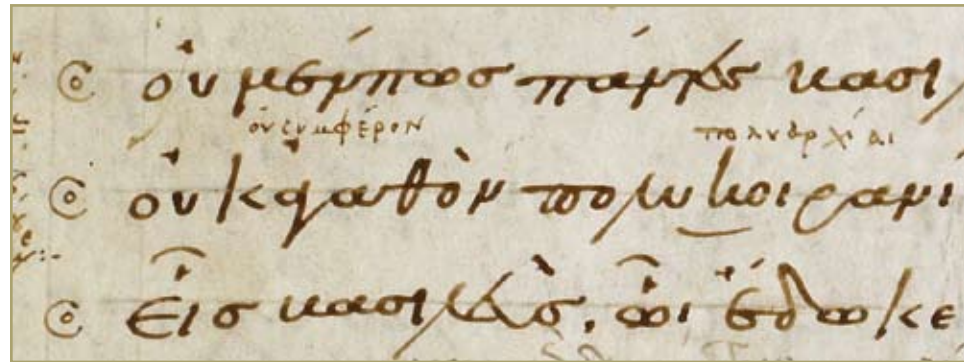 οὐ μέν πως πάντες βασι
οὐ συμφέρον πολυαρχίαι
οὐκ ἀγαθὸν πολυκοιρανί
εἷς βασιλεὺς, ὧι ἔδωκε